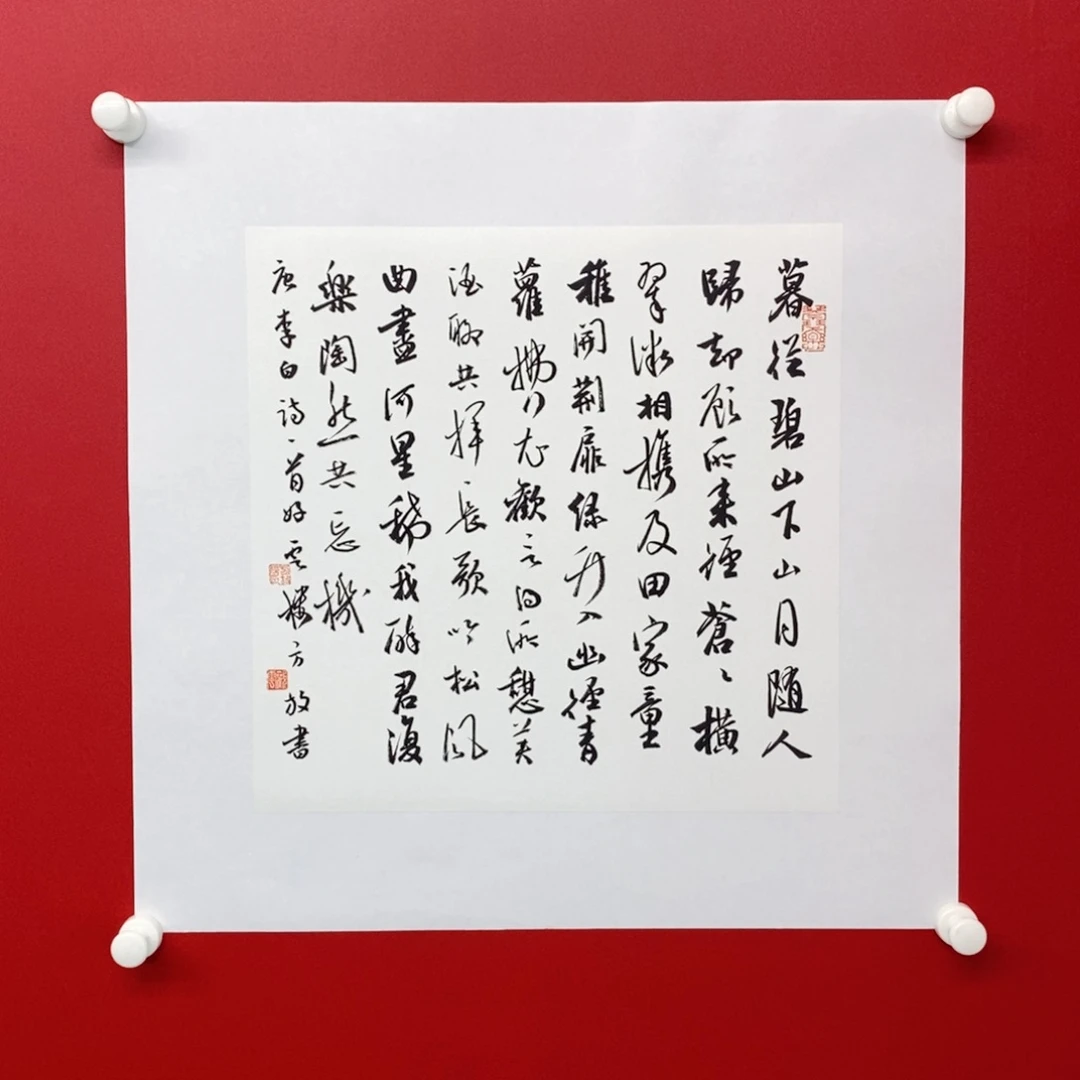 暮從碧山下山月随人
歸却顧所來徑蒼々橫
翠微相攜及田家童
稚開荊扉綠竹入幽徑青
蘿拂行衣歡言得所憩美
酒聊共揮長歌吟松風
曲盡河星稀我醉君復
樂陶然共忘機
唐李白詩一首好雲樓方放書